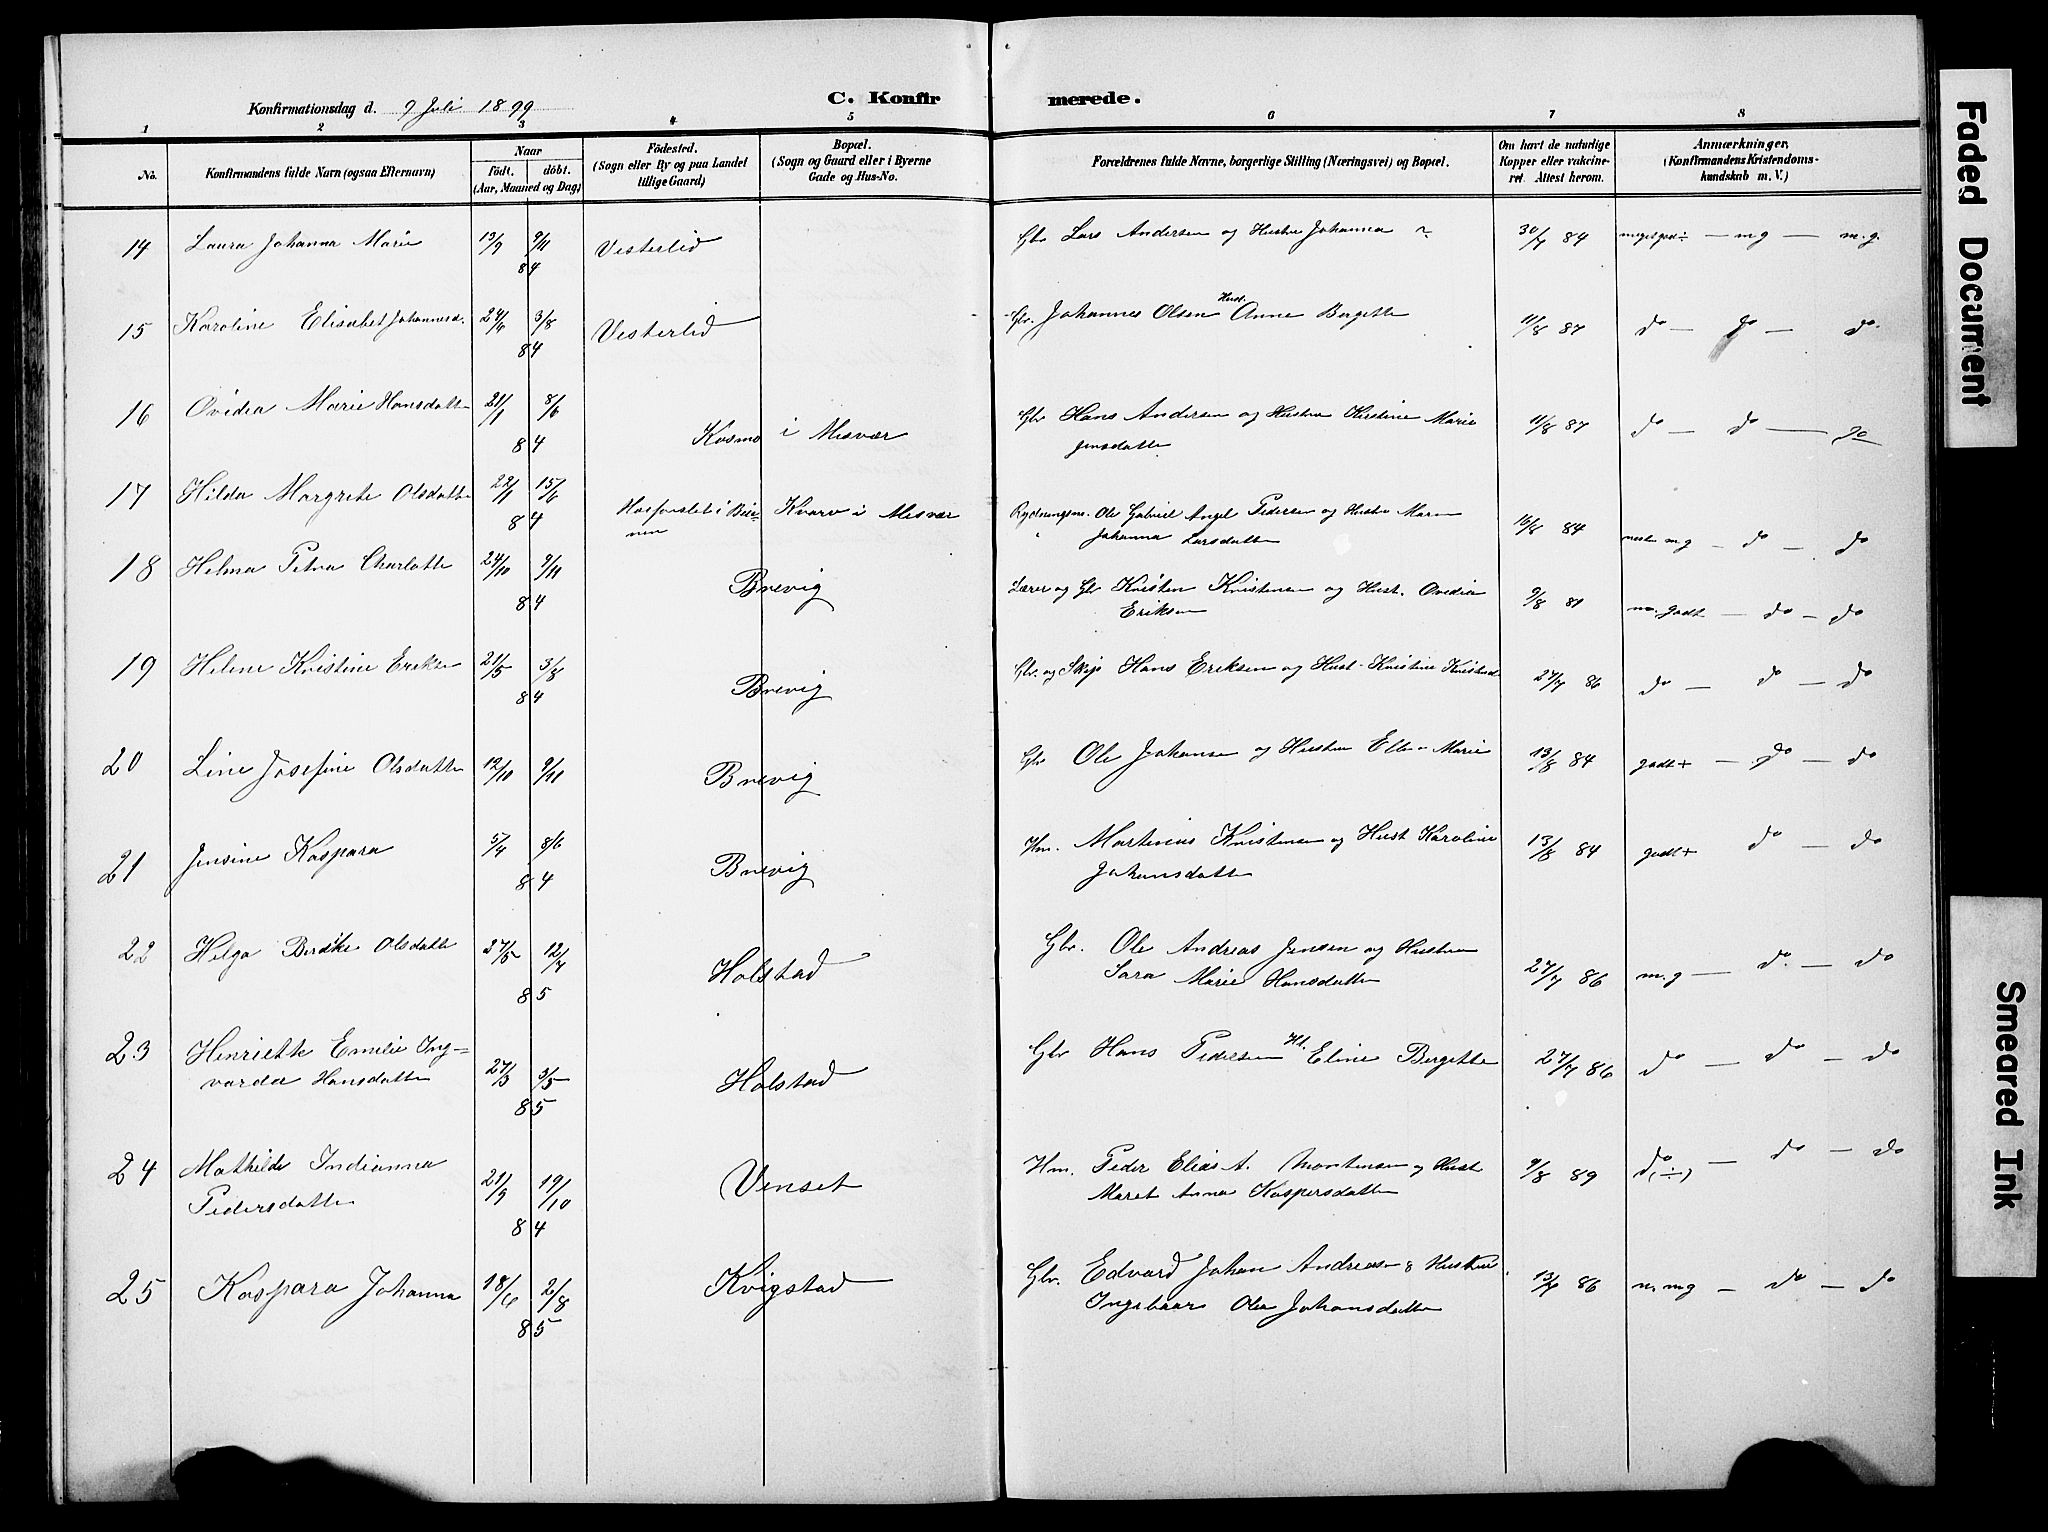 Konfirmationsdag d. 9 Juli 1899
C. Konfirmerede.
1 2 3 4 5 6 7 8
No. Konfirmandens fulde Navn (ogsaa Efternavn) Naar födt. döbt. (Aar, Maaned og Dag) Födested. (Sogn eller By og paa Landet tillige Gaard) Bopæl. (Sogn og Gaard eller i Byerne Gade og Hus-No. Forældrenes fulde Navne, borgerlige Stilling (Næringsvei) og Bopæl. Om havt de naturlige Kopper eller vakcineret. Attest herom. Anmærkninger, (Konfirmandens Kristendomskundskab m. V.)
14 Laura Johanna Marie 13/9 9/11 84 Vesterlid Gbr Lars Andersen og Hustru Johanna 30/7 84 — mg — m.g.
15 Karoline Elisabet Johannesd. 24/6 3/8 84 Vesterlid Gbr. Johannes Olsen Hust. Anne Bergette 11/8 87 do — do — do
16 Ovidia Marie Hansdatte 21/1 8/6 84 Kosmo i Misvær Gbr Hans Andersen og Hustru Kristine Marie
Jensdatte 11/8 87 do — do — do
17 Hilda Margrete Olsdatte 22/1 15/6 84 i Beiernen Kvarv i Misvær Rydningsm. Ole Gabriel Angel Pedersen og Hustru Maren
Johanna Larsdatte 16/8 84 mg — do — do
18 Helma Petra Charlotte 24/10 9/11 84 Brevig Lærer og Gbr Kristen Kristensen og Hust. Ovidia
Eriksen 9/8 89 godt — do — do
19 Helene Kristine Erikse 21/5 3/8 84 Brevig Gbr. og Skip Hans Eriksen og Hust. Kristine Kristensd 27/7 86 do — do — do
20 Line Josefine Olsdatte 12/10 9/11 84 Brevig Gbr Ole Johansen og Hustru Ellen Marie 13/8 84 godt + — do — do
21 Jensine Kaspara 5/4 8/6 84 Brevig Hm. Martinus Kristensen og Hust Karoline
Johansdatte 13/8 84 godt + do — do
22 Helga Olsdatte 27/5 12/7 85 Holstad Gbr. Ole Andreas Jensen og Hustru
Sara Marie Hansdatte 27/7 86 m.g — do — do
23 Henriette Emelie Ing-
varda Hansdatte 27/3 3/5 85 Holstad Gbr Hans Pedersen Ht. Eline Bergette 27/7 86 do — do — do
24 Mathilde Indianna
Pedersdatte 21/9 19/10 84 Venset Hm. Peder Elias A. Mortensen og Hust
Maret Anna Kaspersdatte 9/8 89 do (÷) — do — do
25 Kaspara Johanna 18/6 2/8 85 Kvigstad Gbr. Edvard Johan Andreasen & Hustru
Ingebaar Olea Johansdatte 86 mg — do — do
Faded Document
Smeared Ink